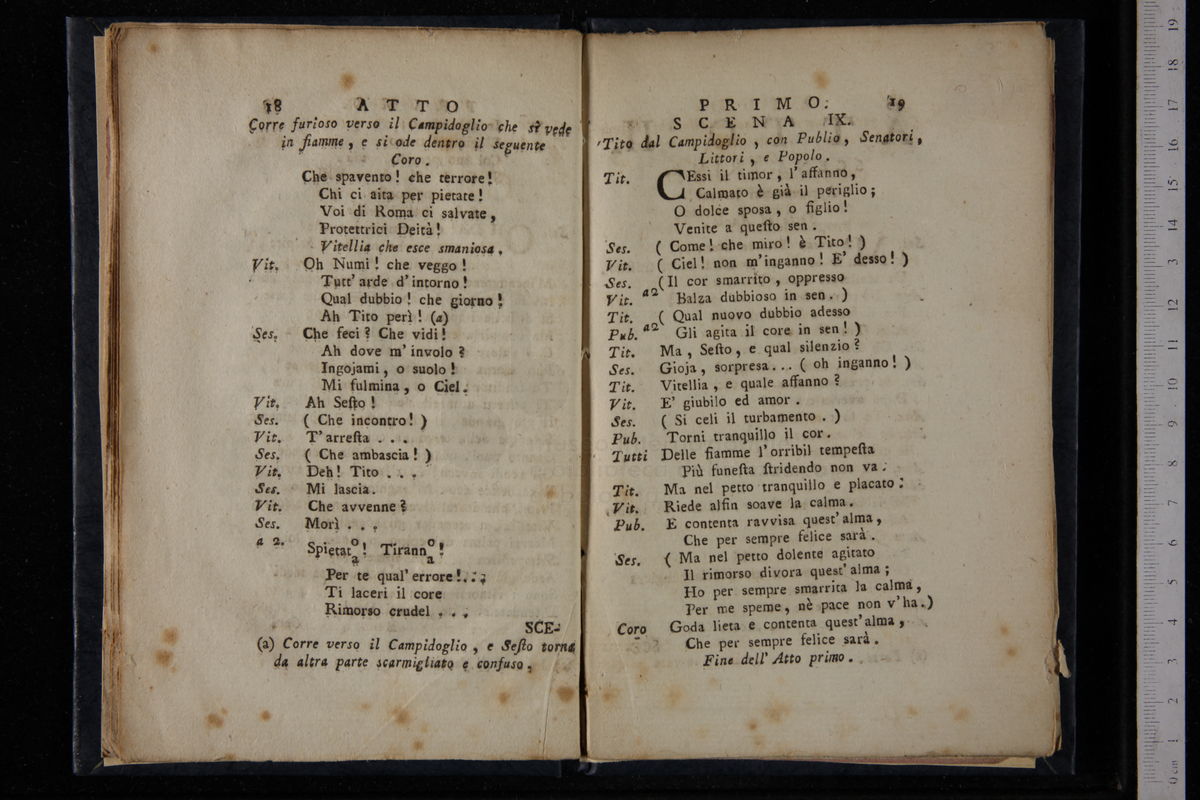 18 ATTO
Corre furioso verso il Campidoglio che si vede
in fiamme, e si ode dentro il seguente
Coro.
Che spavento! che terrore!
Chi ci aita per pietate!
Voi di Roma ci salvate,
Protettrici Deità!
Vitellia che esce smaniosa.
Vit. Oh Numi! che veggo!
Tutt'arde d'intorno!
Qual dubbio! che giorno!
Ah Tito perì! (a)
Ses. Che feci? Che vidi!
Ah dove m'involo?
Ingojami, o suolo!
Mi fulmina, o Ciel.
Vit. Ah Seſto!
Ses. (Che incontro!)
Vit. T'arreſta . . .
Ses. (Che ambascia!)
Vit. Deh! Tito . . .
Ses. Mi lascia.
Vit. Che avvenne?
Ses. Morì . . .
a 2. Spietat o/a! Tirann o/a!
Per te qual'errore!. . .
Ti laceri il core
Rimorso crudel . . .
SCE-
(a) Corre verso il Campidoglio, e Seſto torna
da altra parte scarmigliato e confuso.
PRIMO. 19
SCENA IX.
Tito dal Campidoglio, con Publio, Senatori,
Littori, e Popolo.
Tit. CEssi il timor, l'affanno,
Calmato è già il periglio;
O dolce sposa, o figlio!
Venite a queſto sen.
Ses. (Come! che miro! è Tito!)
Vit. (Ciel! non m'inganno! E' desso!)
Ses. (Il cor smarrito, oppresso
Vit. a2 Balza dubbioso in sen.)
Tit. (Qual nuovo dubbio adesso
Pub. a2 Gli agita il core in sen!)
Tit. Ma, Seſto, e qual silenzio?
Ses. Gioja, sorpresa. . . (oh inganno!)
Tit. Vitellia, e quale affanno?
Vit. E' giubilo ed amor.
Ses. (Si celi il turbamento.)
Pub. Torni tranquillo il cor.
Tutti Delle fiamme l'orribil tempeſta
Più funeſta ſtridendo non va.
Tit. Ma nel petto tranquillo e placato:
Vit. Riede alfin soave la calma.
Pub. E contenta ravvisa quest'alma,
Che per sempre felice sarà.
Ses. (Ma nel petto dolente agitato
Il rimorso divora quest'alma;
Ho per sempre smarrita la calma,
Per me speme, nè pace non v'ha.)
Coro Goda lieta e contenta quest'alma,
Che per sempre felice sarà.
Fine dell'Atto primo.
0 cm 1 2 3 4 5 6 7 8 9 10 11 12 13 14 15 16 17 18 19